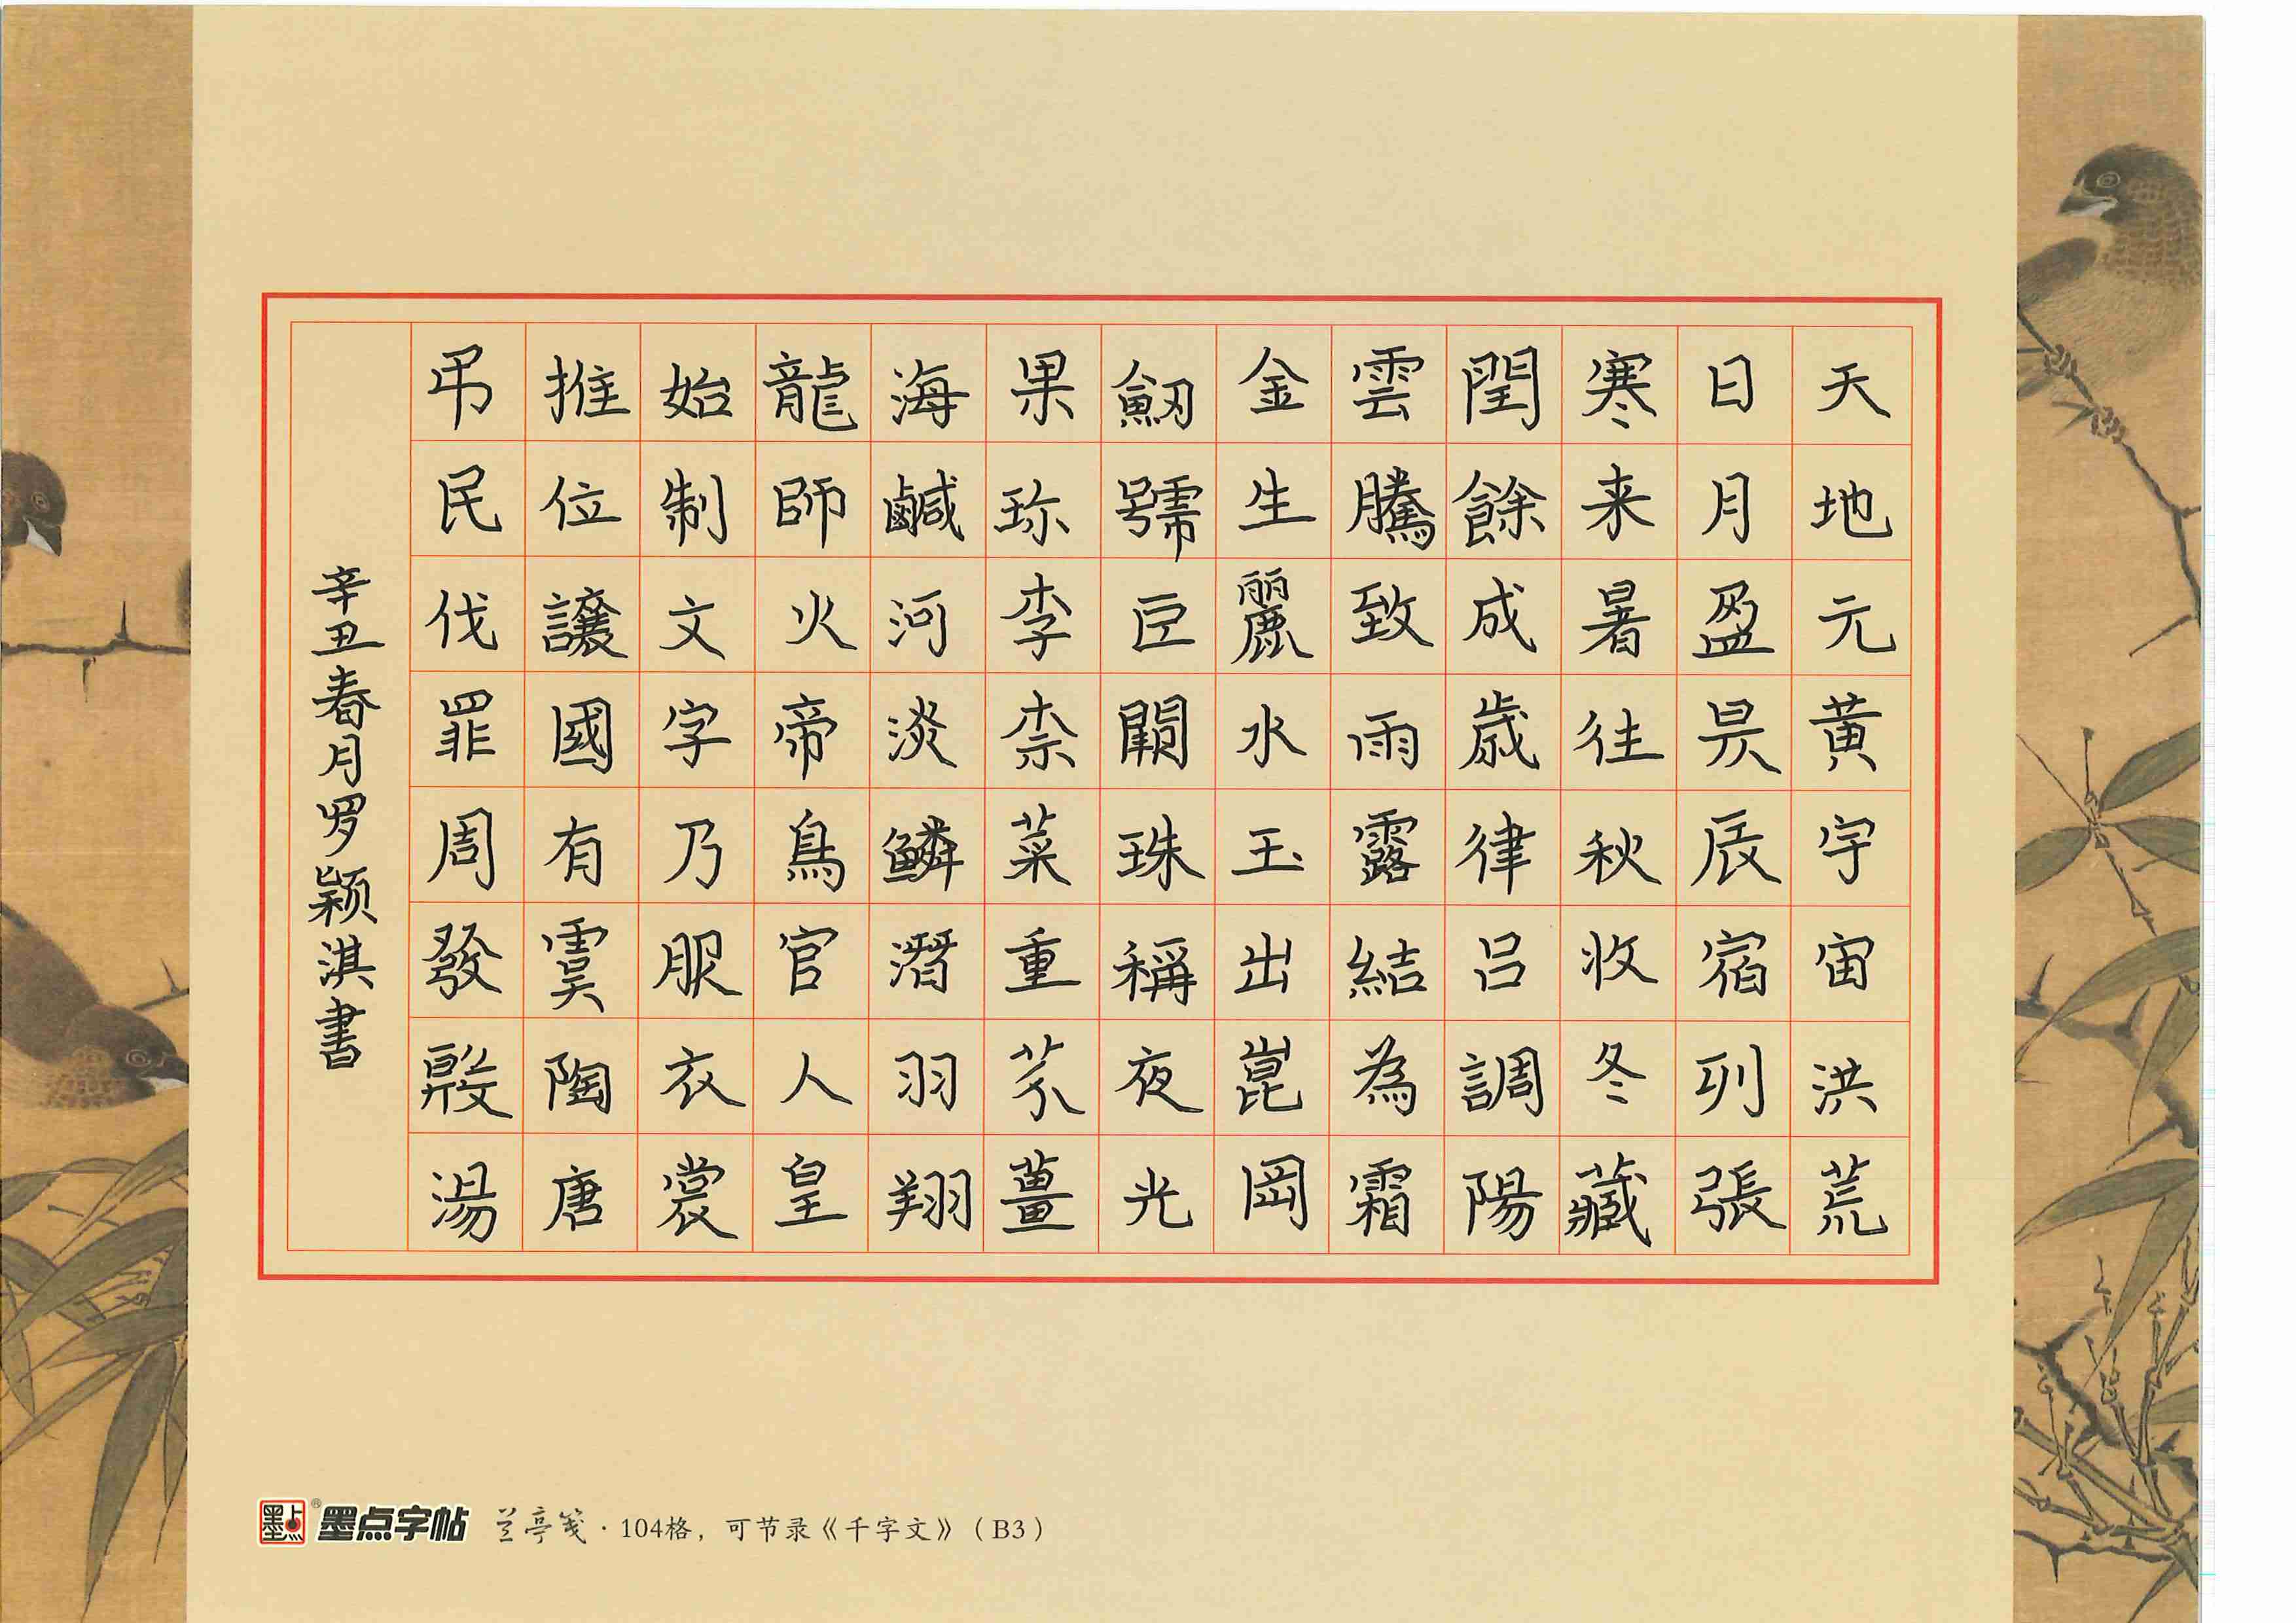 天地元黃宇宙洪荒
日月盈昃辰宿列張
寒来暑往秋收冬藏
閏餘成歲律吕調陽
雲騰致雨露結為霜
金生麗水玉出崑岡
劒號巨闕珠稱夜光
果珎李柰菜重芥薑
海鹹河淡鱗潛羽翔
龍師火帝鳥官人皇
始制文字乃服衣裳
推位讓國有虞陶唐
弔民伐罪周發殷湯
辛丑春月罗颖淇書
墨点® 墨点字帖 兰亭笺·104格，可节录《千字文》（B3）